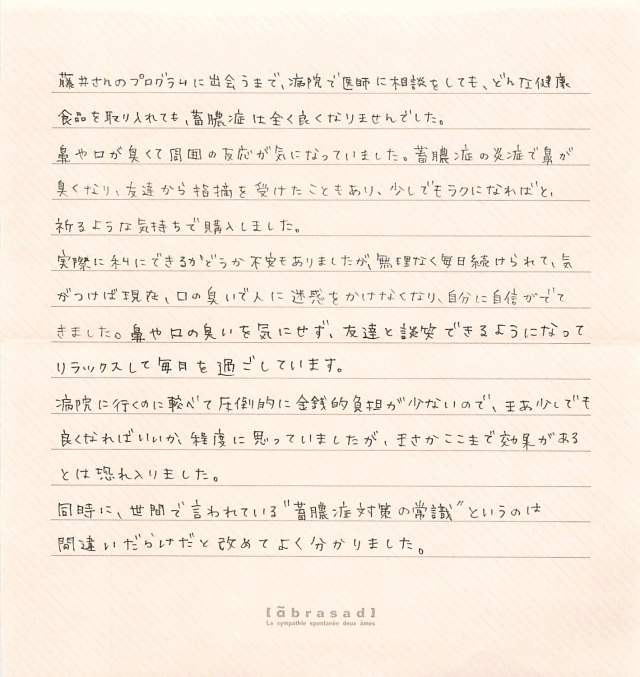 藤井さんのプログラムに出会うまで、病院で医師に相談をしても、どんな健康
食品を取り入れても、蓄膿症は全く良くなりませんでした。
鼻や口が臭くて周囲の反応が気になっていました。蓄膿症の炎症で鼻が
臭くなり、友達から指摘を受けたこともあり、少しでもラクになればと、
祈るような気持ちで購入しました。
実際に私にできるかどうか不安もありましたが、無理なく毎日続けられて、気
がつけば現在、口の臭いで人に迷惑をかけなくなり、自分に自信がでて
きました。鼻や口の臭いを気にせず、友達と談笑できるようになって
リラックスして毎日を過ごしています。
病院に行くのに較べて圧倒的に金銭的負担が少ないので、まあ少しでも
良くなればいいか、程度に思っていましたが、まさかここまで効果がある
とは恐れ入りました。
同時に、世間で言われている"蓄膿症対策の常識"というのは
間違いだらけだと改めてよく分かりました。
[ãbrasad]
La sympathie spontanée deux âmes